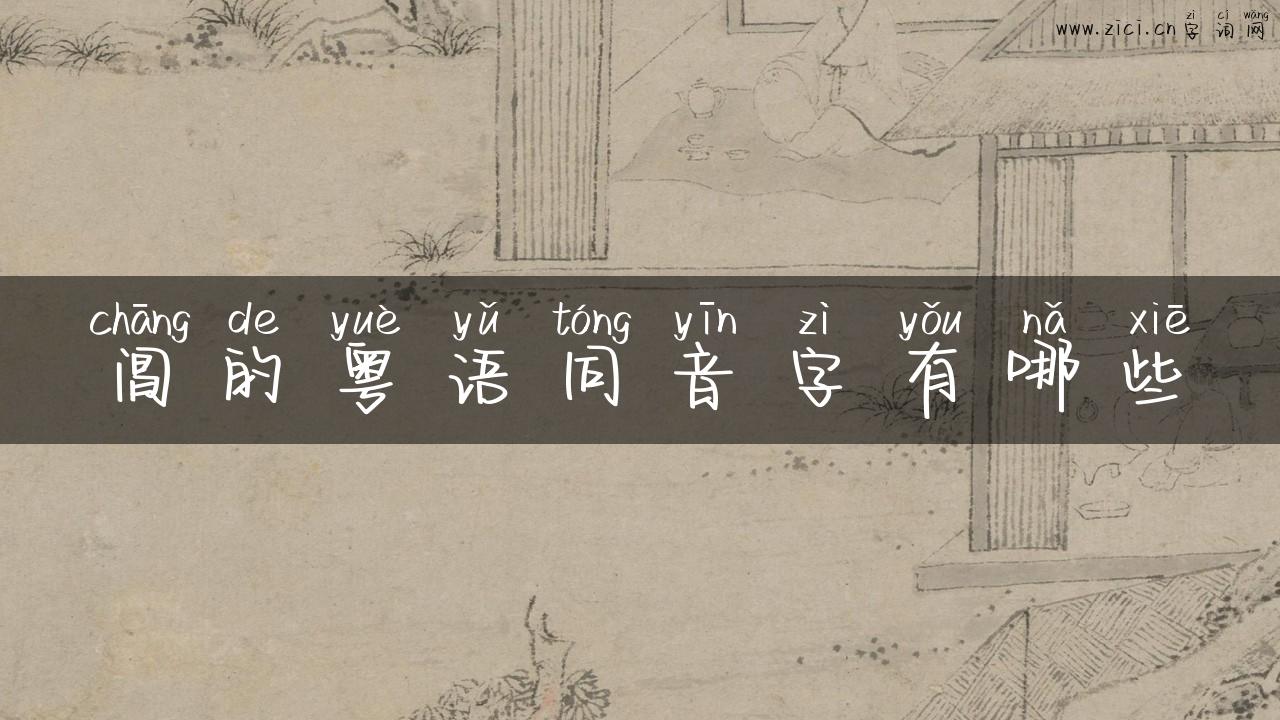 zì cí wǎng
www.zici.cn 字词网
chāng de yuè yǔ tóng yīn zì yǒu nǎ xiē
阊的粤语同音字有哪些